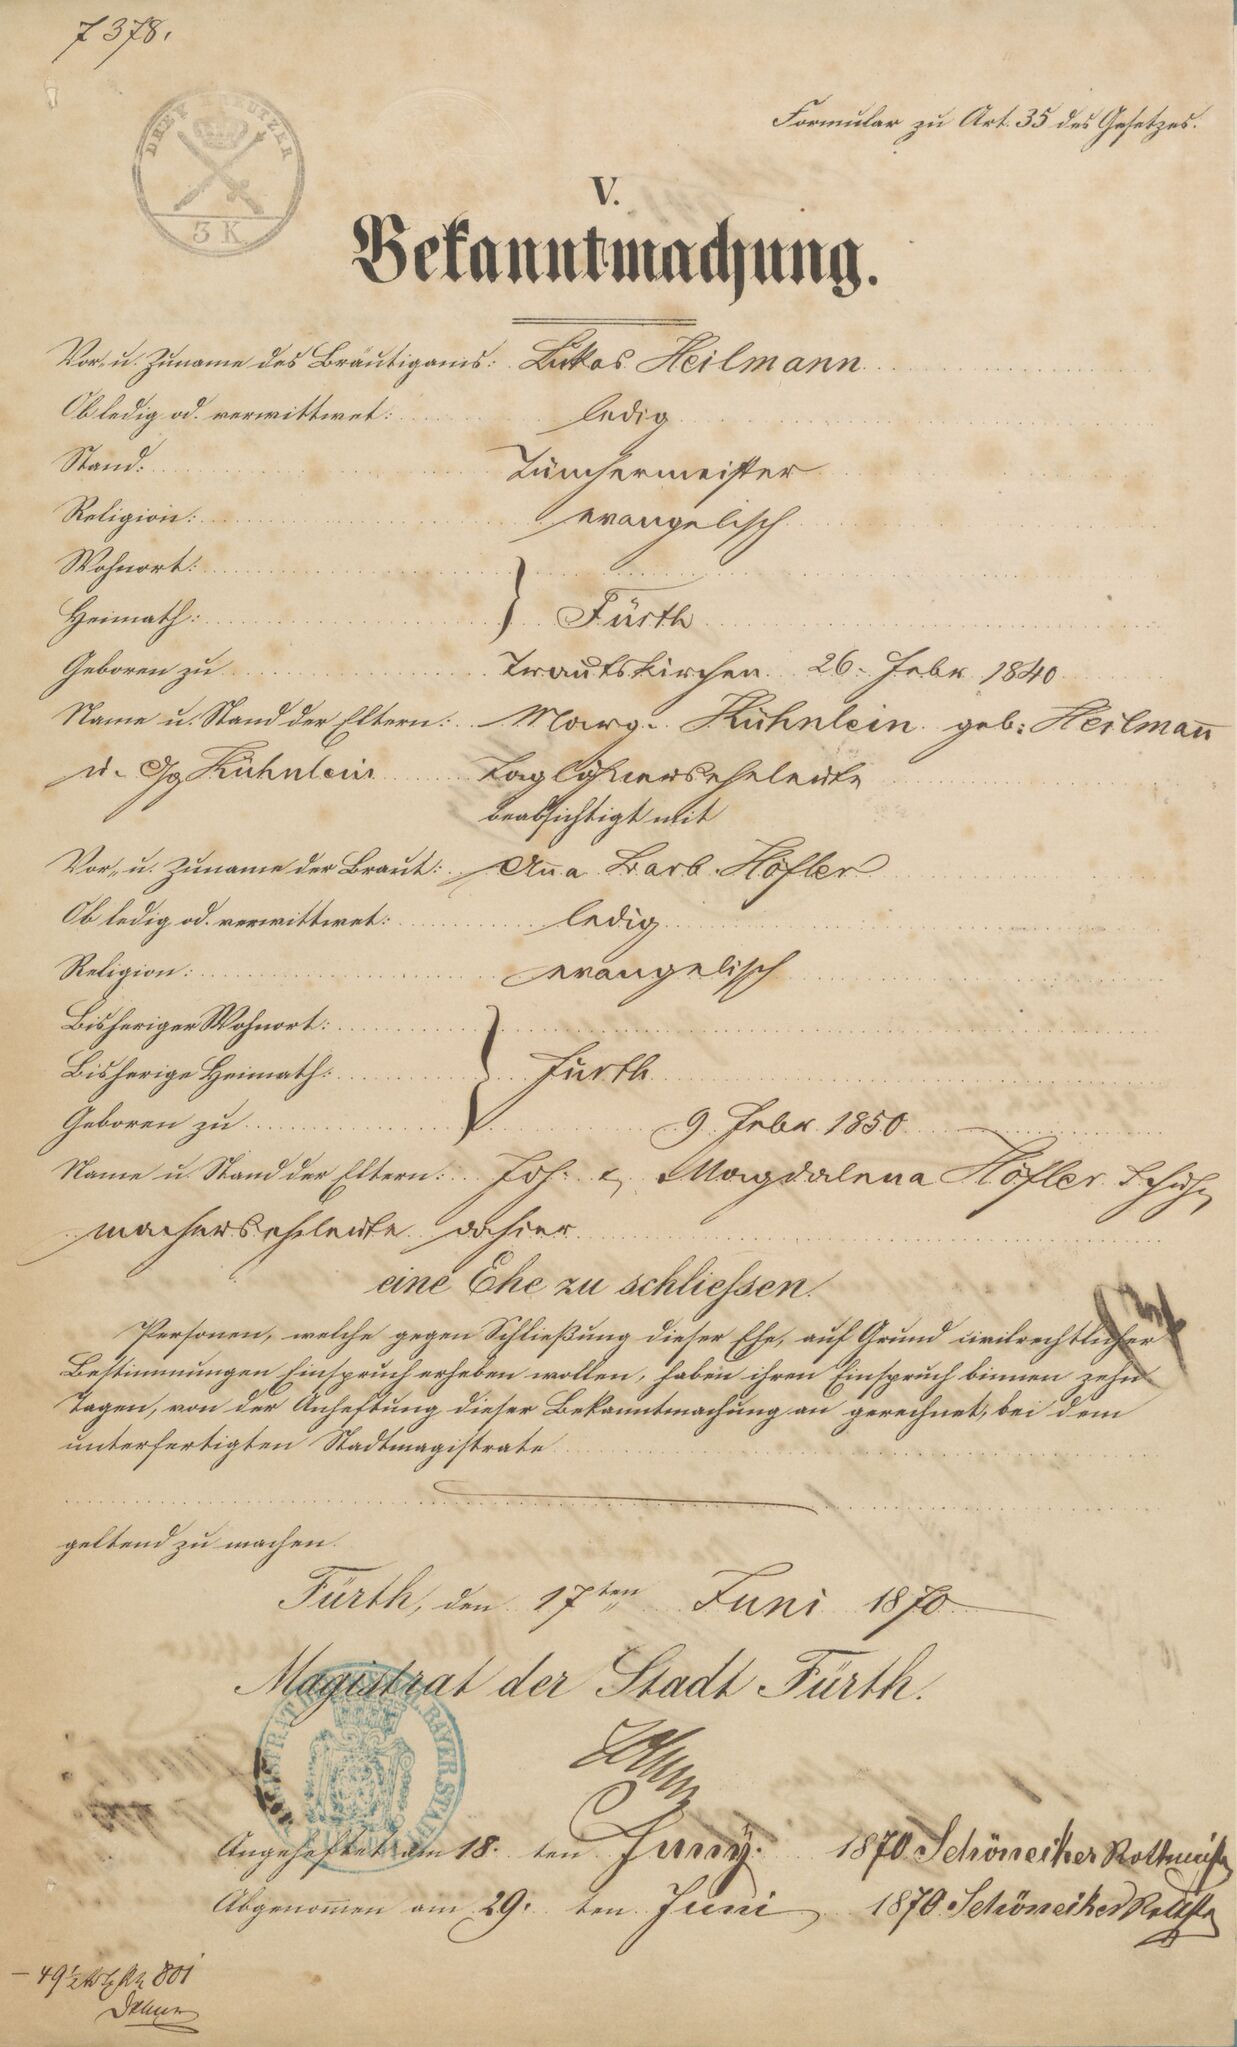 7378.
DREY KREUTZER
3 K
Formular zu Art. 35 des Gesetzes.
V.
Bekanntmachung.
Vor- u. Zuname des Bräutigams: Lukas Heilmann
Ob ledig od. verwittwet: ledig
Stand: Tünchermeister
Religion: evangelisch
Wohnort:
Heimath: Fürth
Geboren zu Trautskirchen 26. Febr. 1840
Name u. Stand der Eltern: Marg. Kühnlein geb: Heilmañ
u. Gg Kühnlein Taglöhnerseheleute
beabsichtigt mit
Vor- u. Zuname der Braut: Aña Barb. Höfler
Ob ledig od. verwittwet: ledig
Religion: evangelisch
Bisheriger Wohnort:
Bisherige Heimath: Fürth
Geboren zu 9. Febr. 1850
Name u. Stand der Eltern: Joh. & Magdalena Höfler Schuh-
macherseheleute dahier
eine Ehe zu schliessen.
Personen, welche gegen Schließung dieser Ehe, auf Grund civilrechtlicher
Bestimmungen Einspruch erheben wollen, haben ihren Einspruch binnen zehn
Tagen, von der Anheftung dieser Bekanntmachung an gerechnet, bei dem
unterfertigten Stadtmagistrate
geltend zu machen.
Fürth, den 17ten Juni 1870
Magistrat der Stadt Fürth.
Angeheftet am 18. ten Juny. 1870 Schöneiker Rottmeister
Abgenommen am 29. ten Juni 1870 Schöneiker